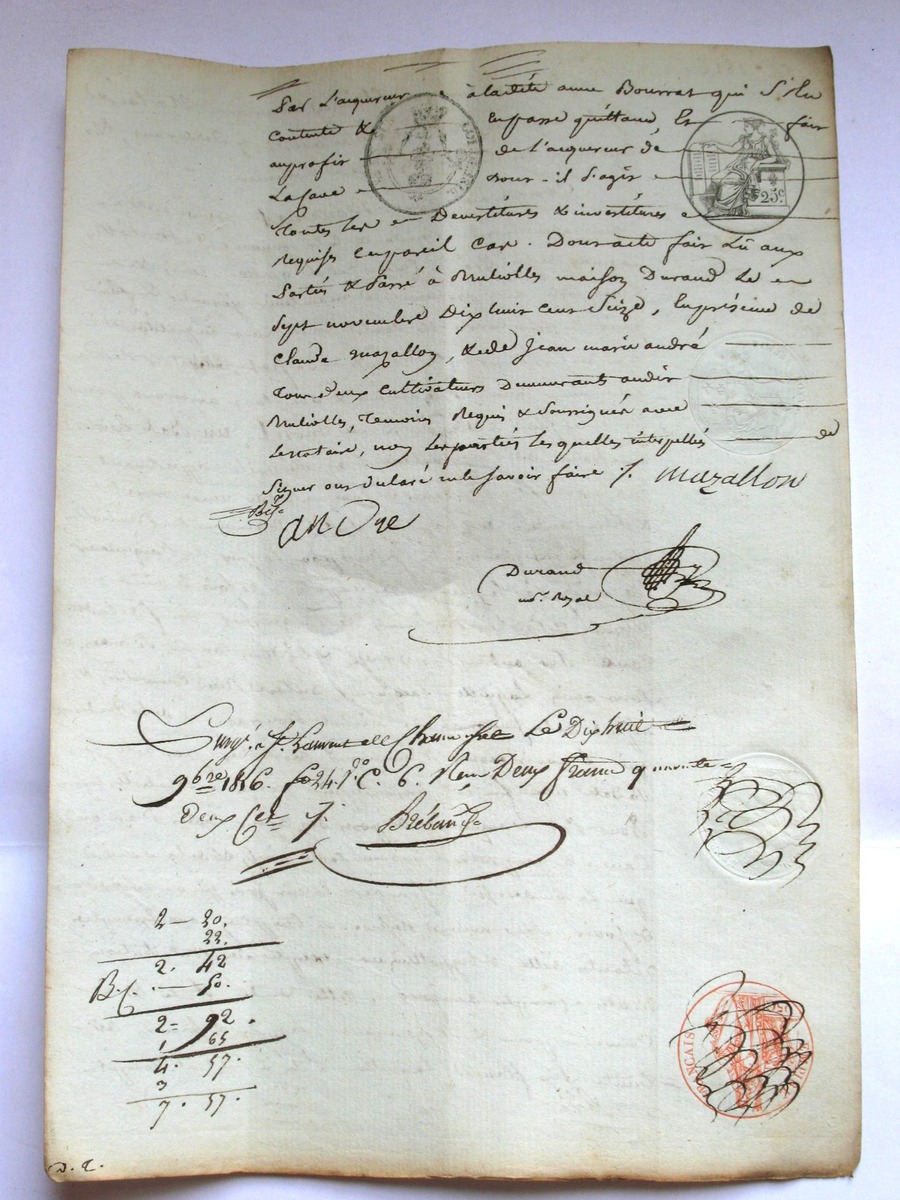 Par L'aquereur à laditte anne Bourrat qui S'en
Contente & En passe quittance, Et fair
au profir de L'aqueureur de
La Cave dont il S'agit
Toutes Les Devestitures & investitures
Requises En pareil Cas. Dont acte fair Lû aux
Parties & Passé à maison Durand Le
Sept novembre Dix huit Cent Seize, En présence de
Claude Mazallon, & de Jean marie andré
Tous deux Cultivateurs Demeurants audit
Temoins Requis & Soussignés avec
Le notaire, non Les parties Les quelles interpellés de
Signer ont declaré ne le Savoir faire ./. Mazallon
anDre
Durand
not. Royal
25c.
Enregé. a St. Laurent de Chamousset Le Dix huit
9bre 1816. fo 24 Ro C. 6. Reçu Deux francs quarante
Deux Ces ./.
2 — 20.
22.
2. 42
B.C. — 50.
2 = 92.
1 65
4. 57
3
7. 57.
FRANÇAIS
D. C.